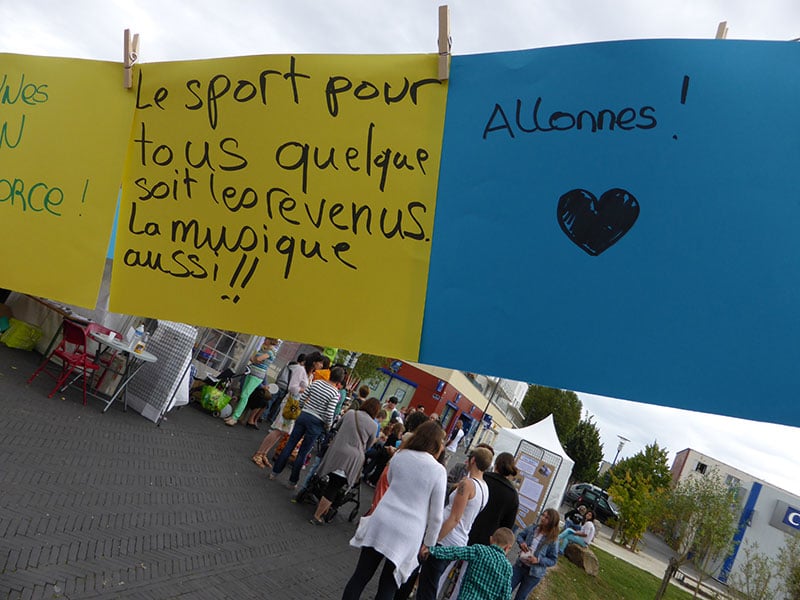 ORCE !
Le sport pour
tous quelque
soit les revenus.
La musique
aussi !!
Allonnes !